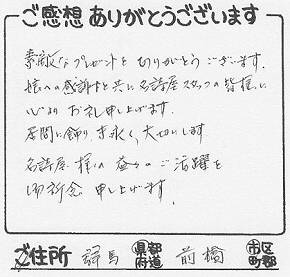 ご感想 ありがとうございます
素敵なプレゼントを ありがとう ございます.
娘への感謝と共に 名詩屋スタッフの皆様に
心より お礼申し上げます.
居間に飾り 末永く大切にします
名詩屋 様の 益々の ご活躍を
ご祈念 申し上げます.
ご住所 群馬 都道府県 前橋 市区町郡